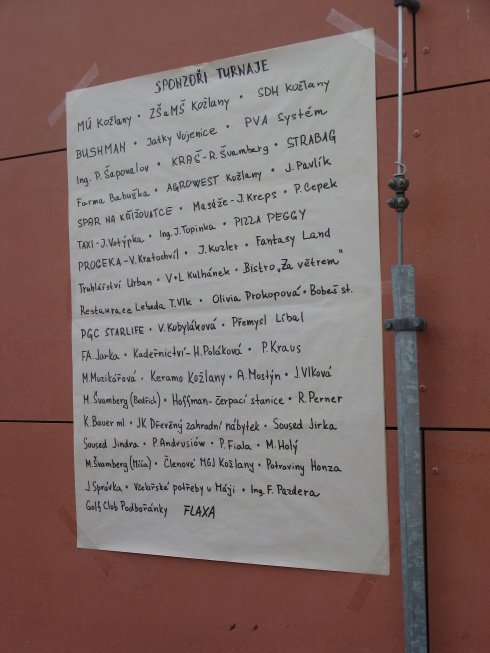 SPONZOŘI TURNAJE
MÚ Kožlany • ZŠaMŠ Kožlany • SDH Kožlany
BUSHMAN • Jatky Vojenice • PVA Systém
Ing. P. Šapovalov • KRAŠ-R. Švamberg • STRABAG
Farma Babuška • AGROWEST Kožlany • J. Pavlík
SPAR NA KŘIŽOVATCE • Masáže-J. Kreps • P. Cepek
TAXI-J. Votýpka • Ing. J. Topinka • PIZZA PEGGY
PROGEKA-V. Kratochvíl • J. Kozler • Fantasy Land
Truhlářství Urban • V+L Kulhánek • Bistro „Za větrem"
Restaurace Lebeda T. Vlk • Olivia Prokopová • Bobeš st.
PGC STARLIFE • V. Kobyláková • Přemysl Líbal
FA. Jarka • Kadeřnictví-H. Poláková • P. Kraus
M. Muzikářová • Keramo Kožlany • A. Mostýn • J. Vlková
M. Švamberg (Bedřich) • Hoffman-čerpací stanice • R. Perner
K. Bauer ml. • JK Dřevěný zahradní nábytek • Soused Jirka
Soused Jindra • P. Andrusiów • P. Fiala • M. Holý
M. Švamberg (Míša) • Členové MGJ Kožlany • Potraviny Honza
J. Správka • Včelařské potřeby u Máji • Ing. F. Pazdera
Golf Club Podbořánky FLAXA